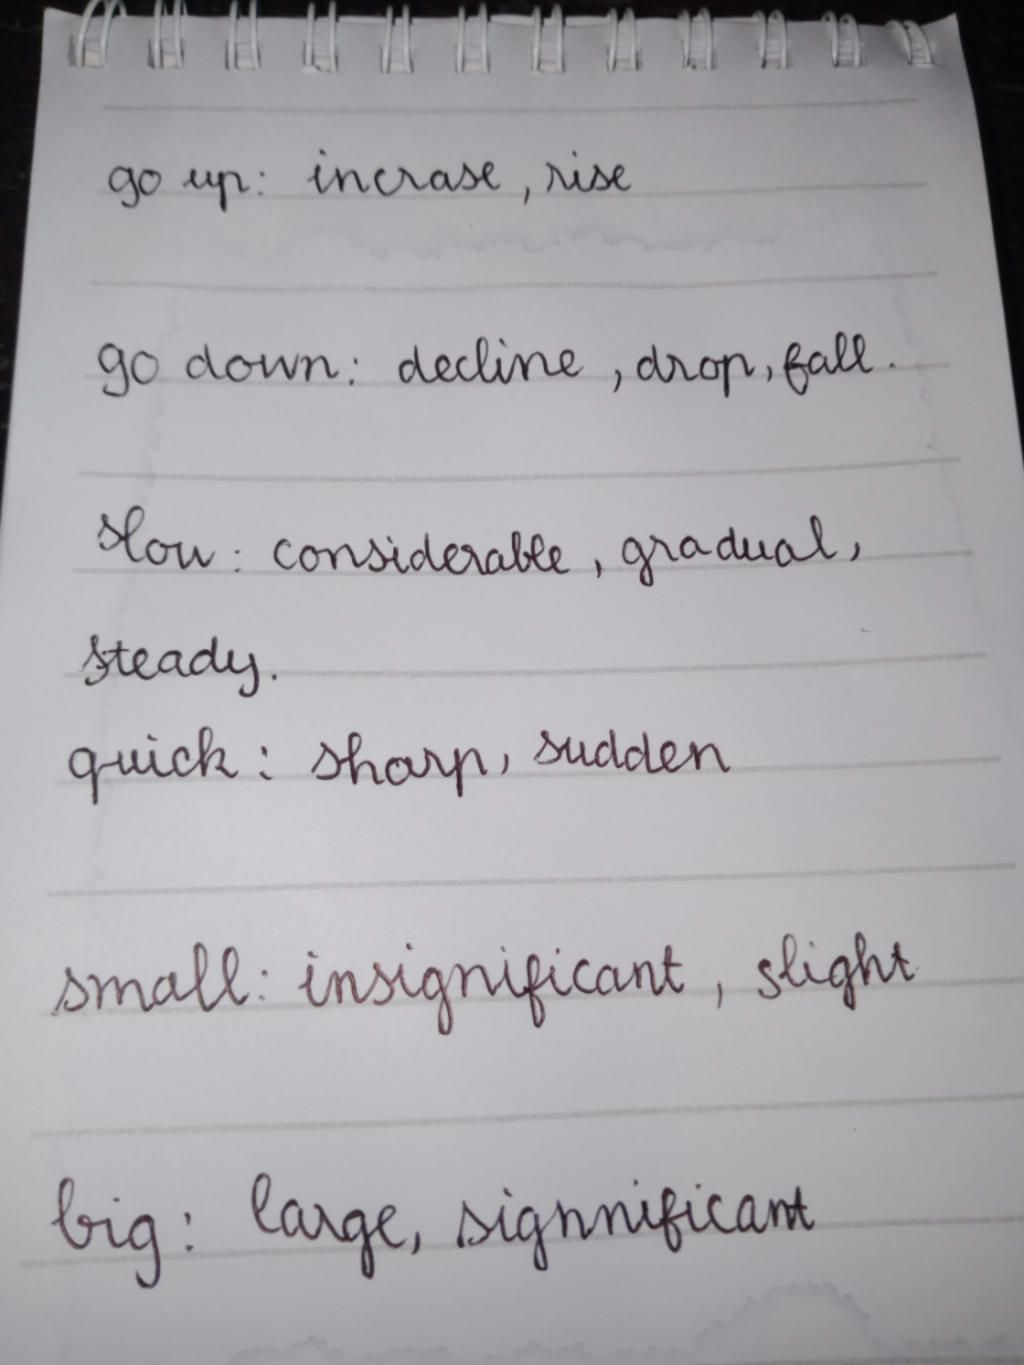 go up: incrase, rise
go down: decline, drop, fall.
slow: considerable, gradual,
steady.
quick: sharp, sudden
small: insignificant, slight
big: large, signnificant